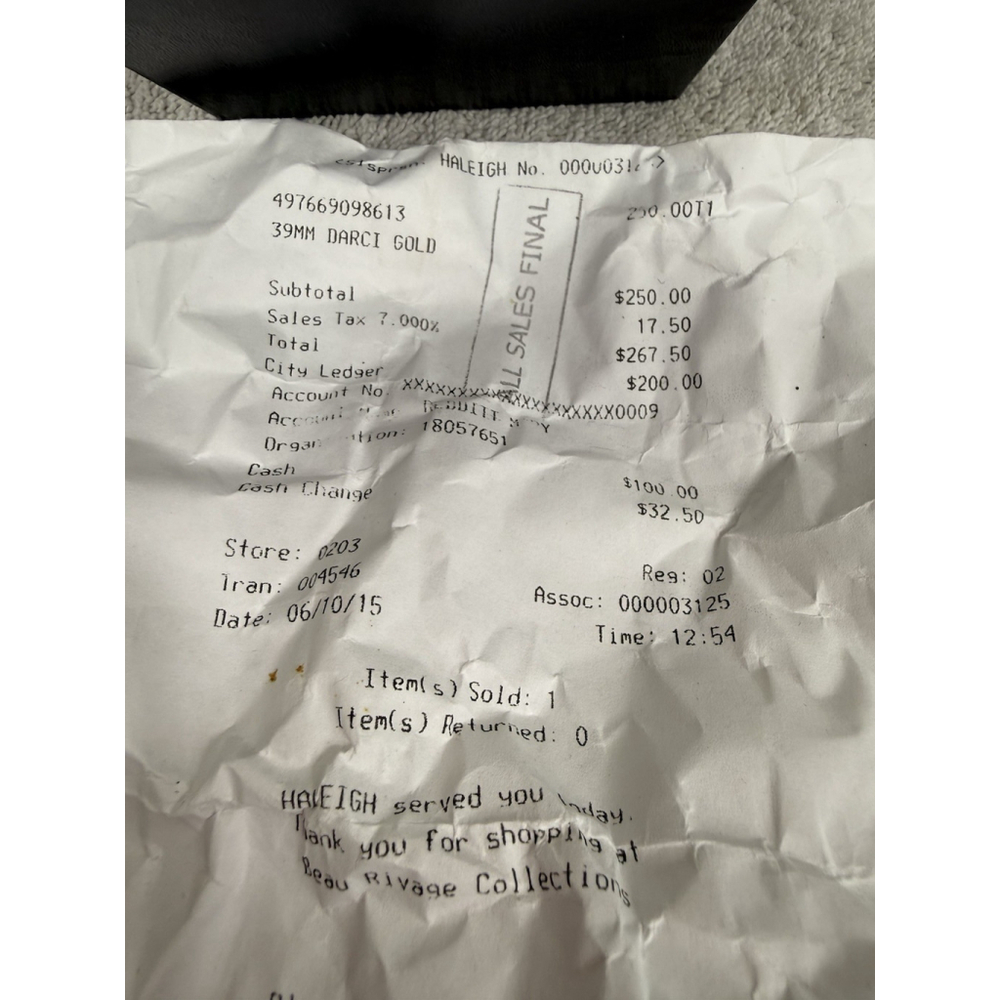 HALEIGH No.
497669098613 250.00T1
39MM DARCI GOLD
ALL SALES FINAL
Subtotal $250.00
Sales Tax 7.000% 17.50
Total $267.50
City Ledger $200.00
Account No. XXXXXXXXXXXXXXXXXXXXXXXX0009
Account
18057651
Cash $100.00
Cash Change $32.50
Store: 0203 Reg: 02
Tran: 004546 Assoc: 000003125
Date: 06/10/15 Time: 12:54
Item(s) Sold: 1
Item(s) Returned: 0
HALEIGH served you today.
Thank you for shopping at
Beau Rivage Collections